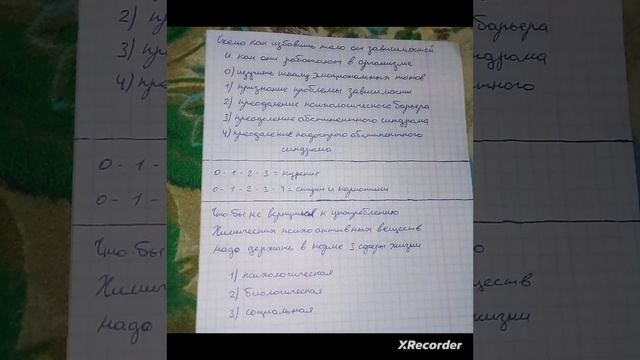 Схема как избавить тело от зависимостей
и как они работают в организме
0) изучить шкалу эмоциональных тонов
1) признание проблемы зависимости
2) преодаление психологического барьера
3) преодоление абстинентного синдрома
4) преодаление подострого абстинентного
синдрома
0 - 1 - 2 - 3 = курение
0 - 1 - 2 - 3 - 4 = спирт и наркотики
Что бы не вернуться к употреблению
Химически психоактивных веществ
надо держать в норме 3 сферы жизни
1) психологическая
2) биологическая
3) социальная
XRecorder